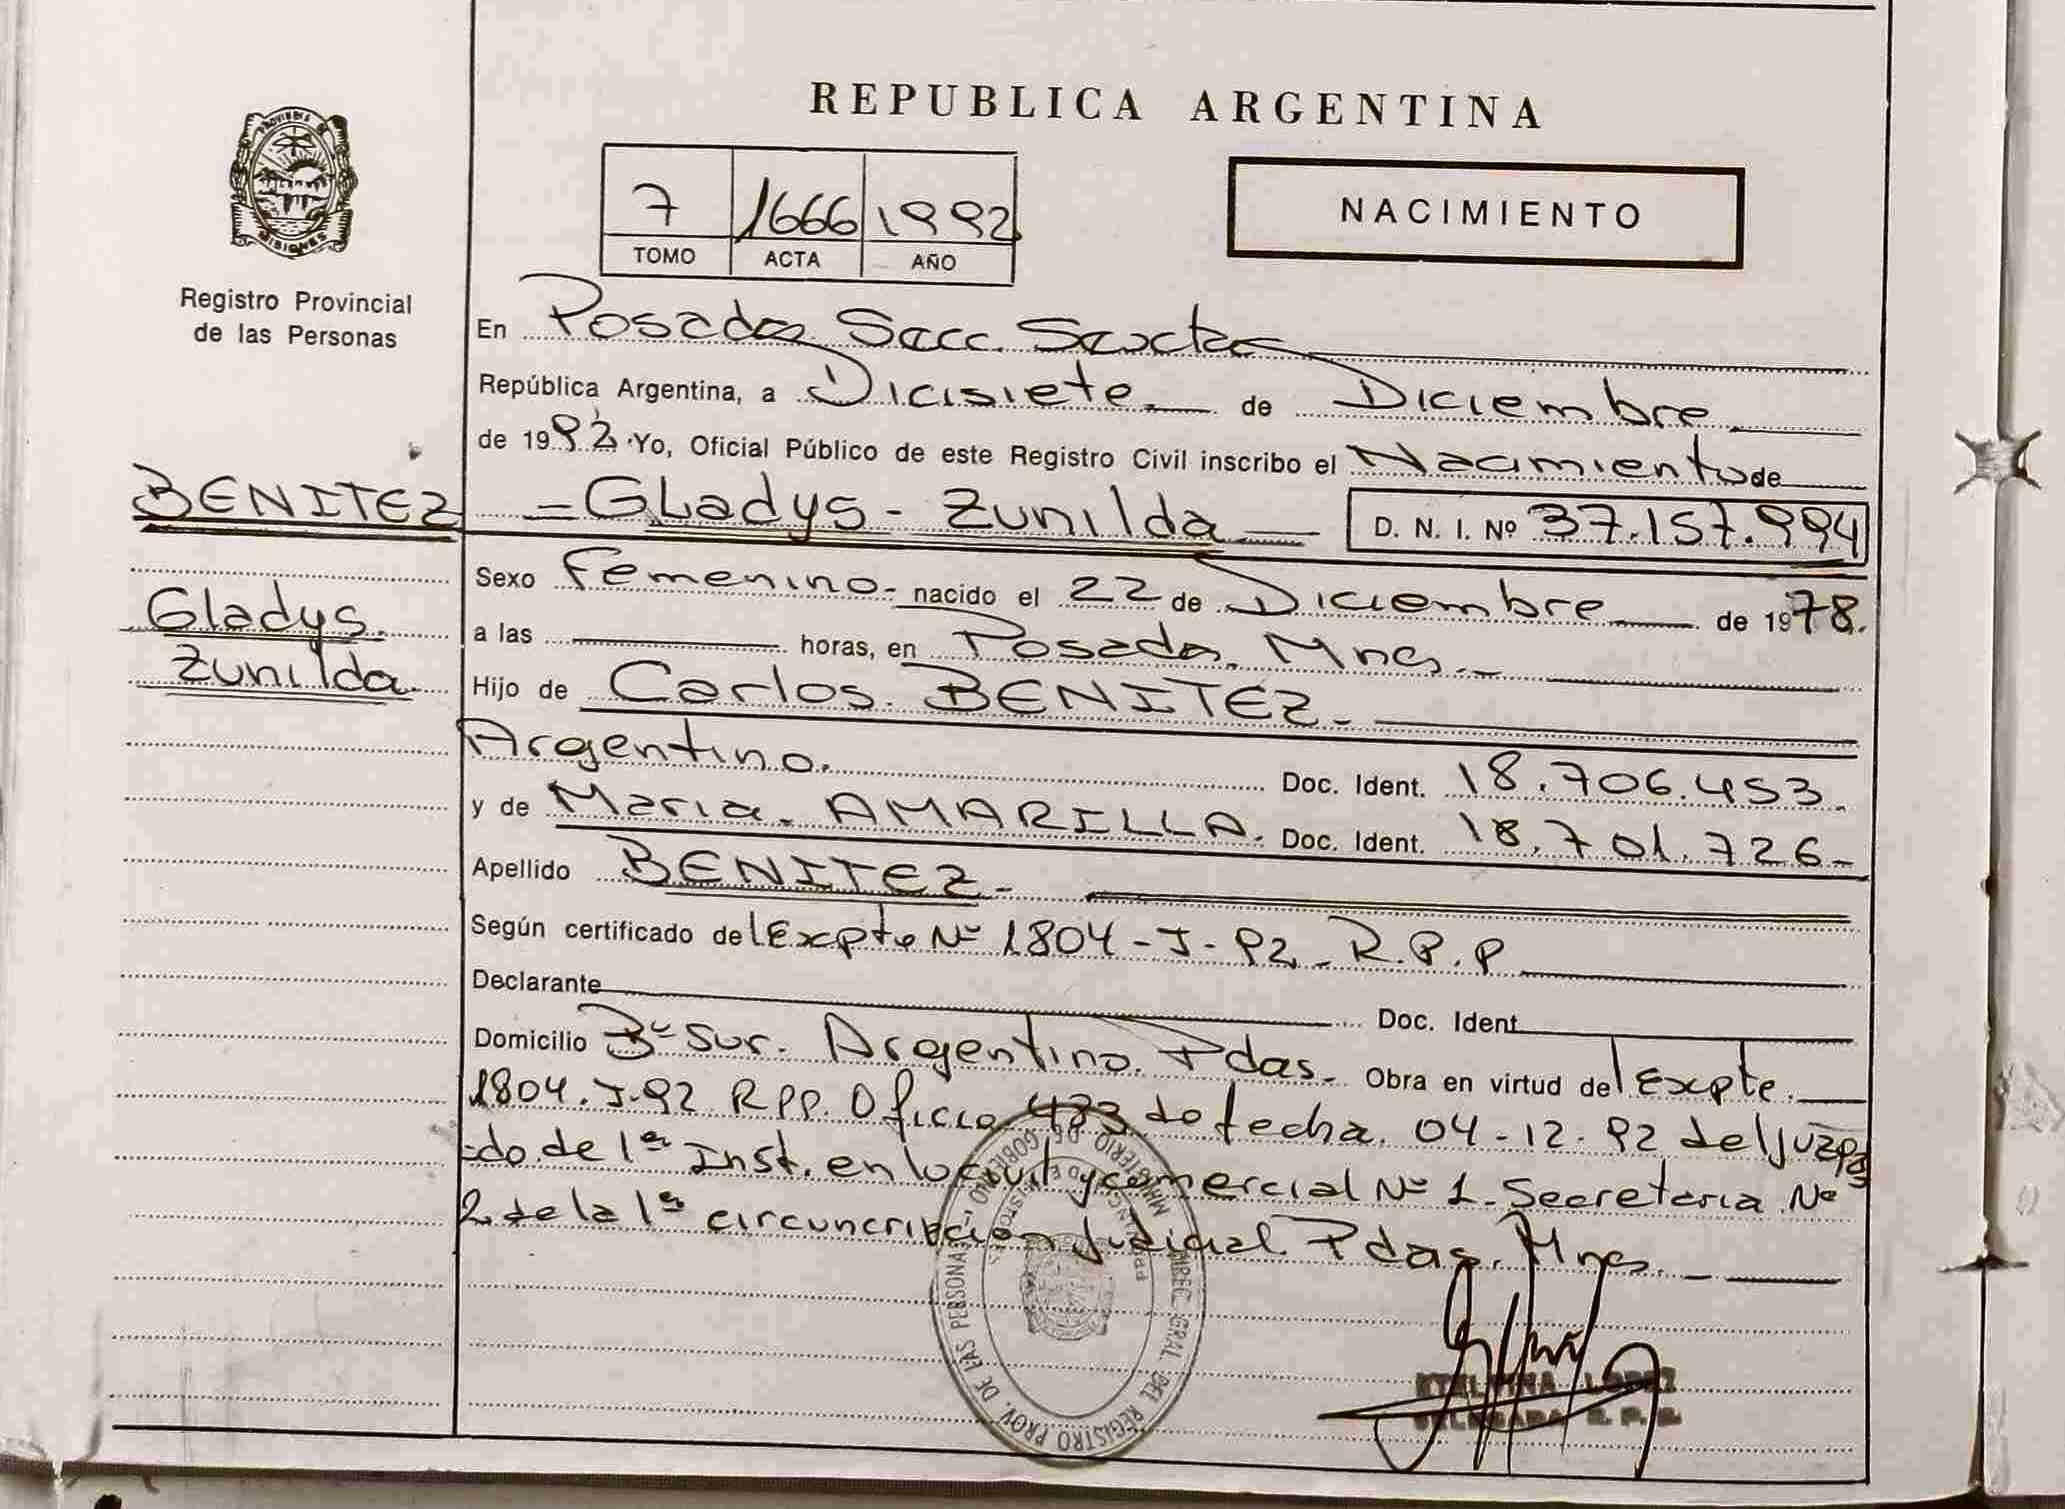 REPUBLICA ARGENTINA
PROVINCIA DE MISIONES
Registro Provincial
de las Personas
7 1666 1992
TOMO ACTA AÑO
NACIMIENTO
En Posadas Secc. Sexta
República Argentina, a Diecisiete de Diciembre
de 1992 Yo, Oficial Público de este Registro Civil inscribo el Nacimiento de
BENITEZ = Gladys - Zunilda D. N. I. Nº 37.157.994
Gladys
Zunilda
Sexo Femenino - nacido el 22 de Diciembre de 1978.
a las horas, en Posadas. Mnes. -
Hijo de Carlos. BENITEZ. -
Argentino. Doc. Ident. 18.706.453.
y de Maria. AMARILLA. Doc. Ident. 18.701.726-
Apellido BENITEZ. -
Según certificado del Expte Nº 1804-J-92 - R.P.P
Declarante Doc. Ident
Domicilio Bº Sur. Argentino. Pdas. - Obra en virtud del Expte.
1804. J-92 RPP. Oficio 483 de fecha. 04-12-92 del juzga
-do de 1ª Inst. en lo civil y comercial Nº 1. Secretaria Nº
2 de la 1ª circuncripción Judicial Pdas. Mnes. -
DIREC. GRAL. DEL REGISTRO PROV. DE LAS PERSONAS
MINISTERIO DE GOBIERNO
PROVINCIA DE MISIONES
LOPEZ